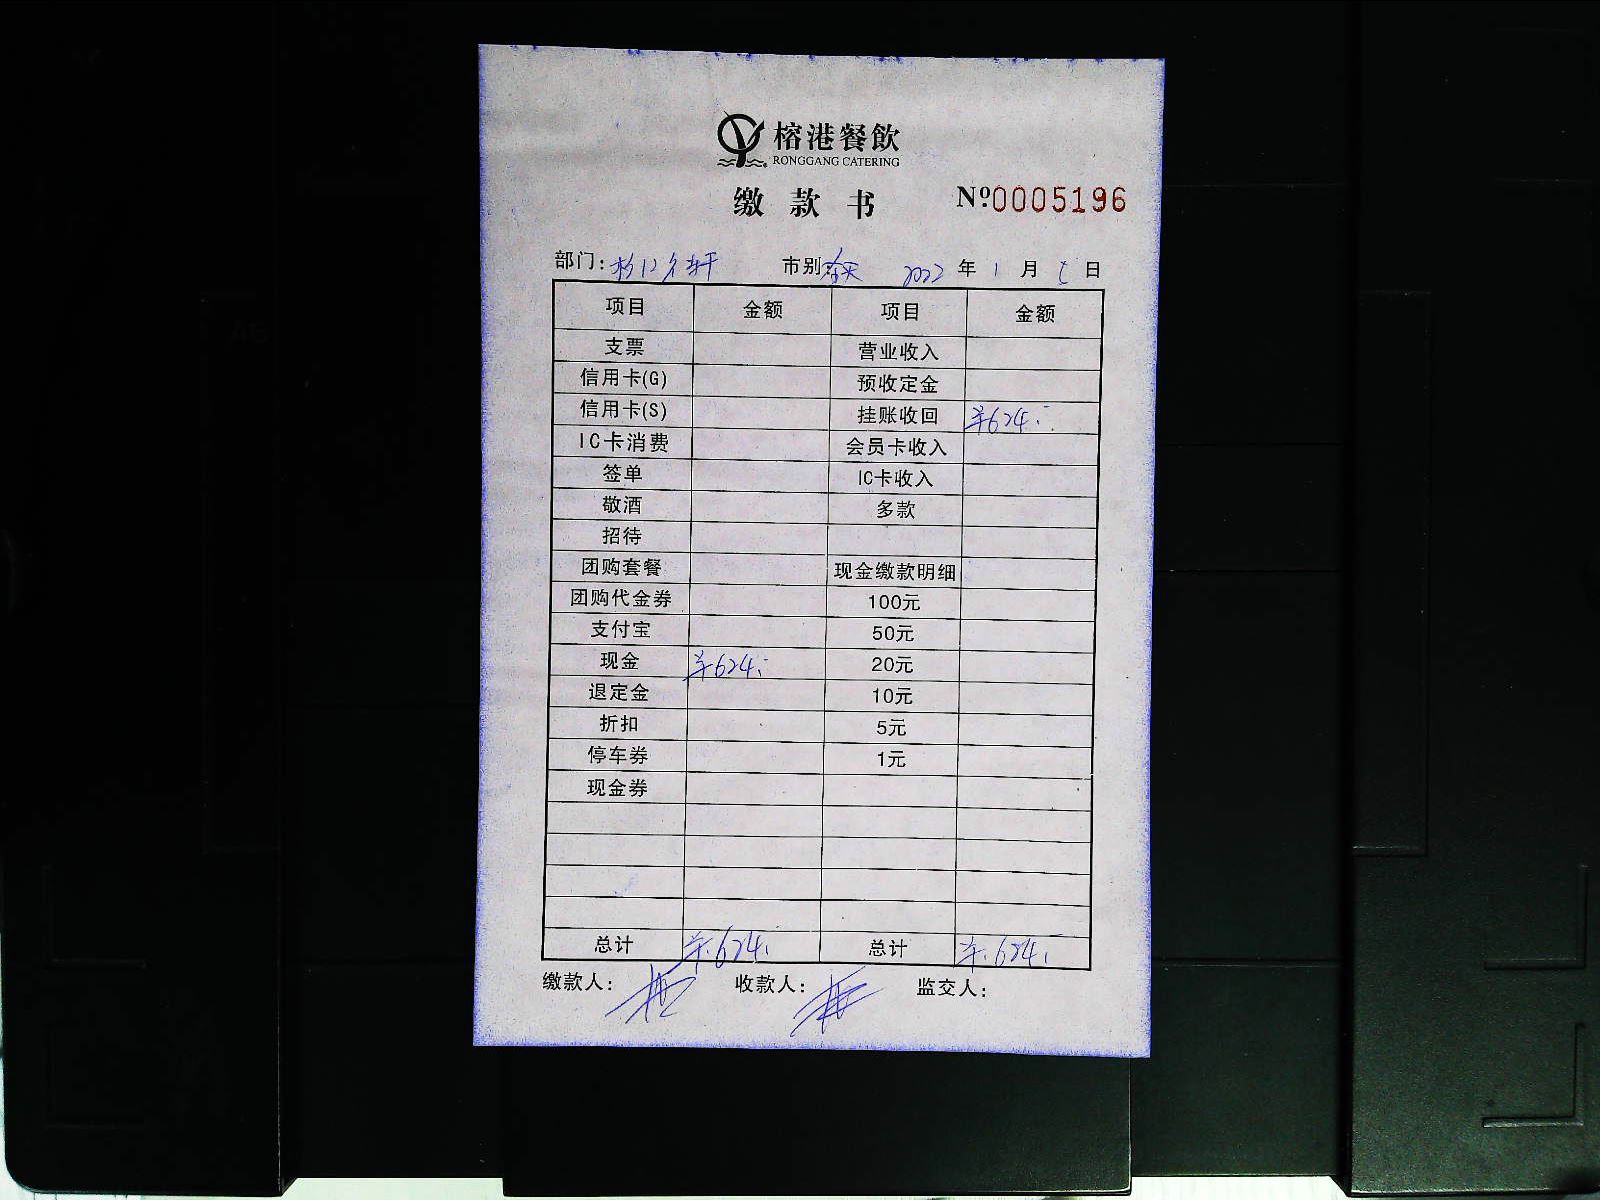 榕港餐飲
RONGGANG CATERING
缴款书 Nº0005196
部门: 市别: 全天 2022年1月 日
项目 金额 项目 金额
支票 营业收入
信用卡(G) 预收定金
信用卡(S) 挂账收回 ¥624.
IC卡消费 会员卡收入
签单 IC卡收入
敬酒 多款
招待
团购套餐 现金缴款明细
团购代金券 100元
支付宝 50元
现金 ¥624. 20元
退定金 10元
折扣 5元
停车券 1元
现金券
总计 ¥.624. 总计 ¥.624.
缴款人: 收款人: 监交人: